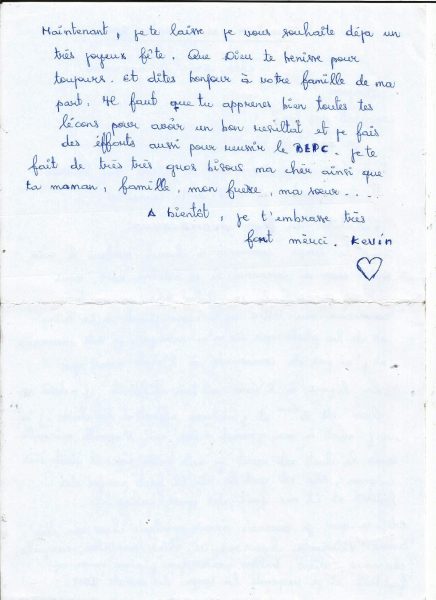 Maintenant, je te laisse je vous souhaite déja un
très joyeux fête. Que Dieu te benisse pour
toujours. Et dîtes bonjour à votre famille de ma
part. Il faut que tu apprenes bien toutes tes
lécons pour avoir un bon resultat et je fais
des éfforts aussi pour reussir le BEPC. je te
fait de très très gros bisous ma chèr ainsi que
ta maman, famille, mon frere, ma sœur....
A bientôt, je t'embrasse très
fort merci. Kevin